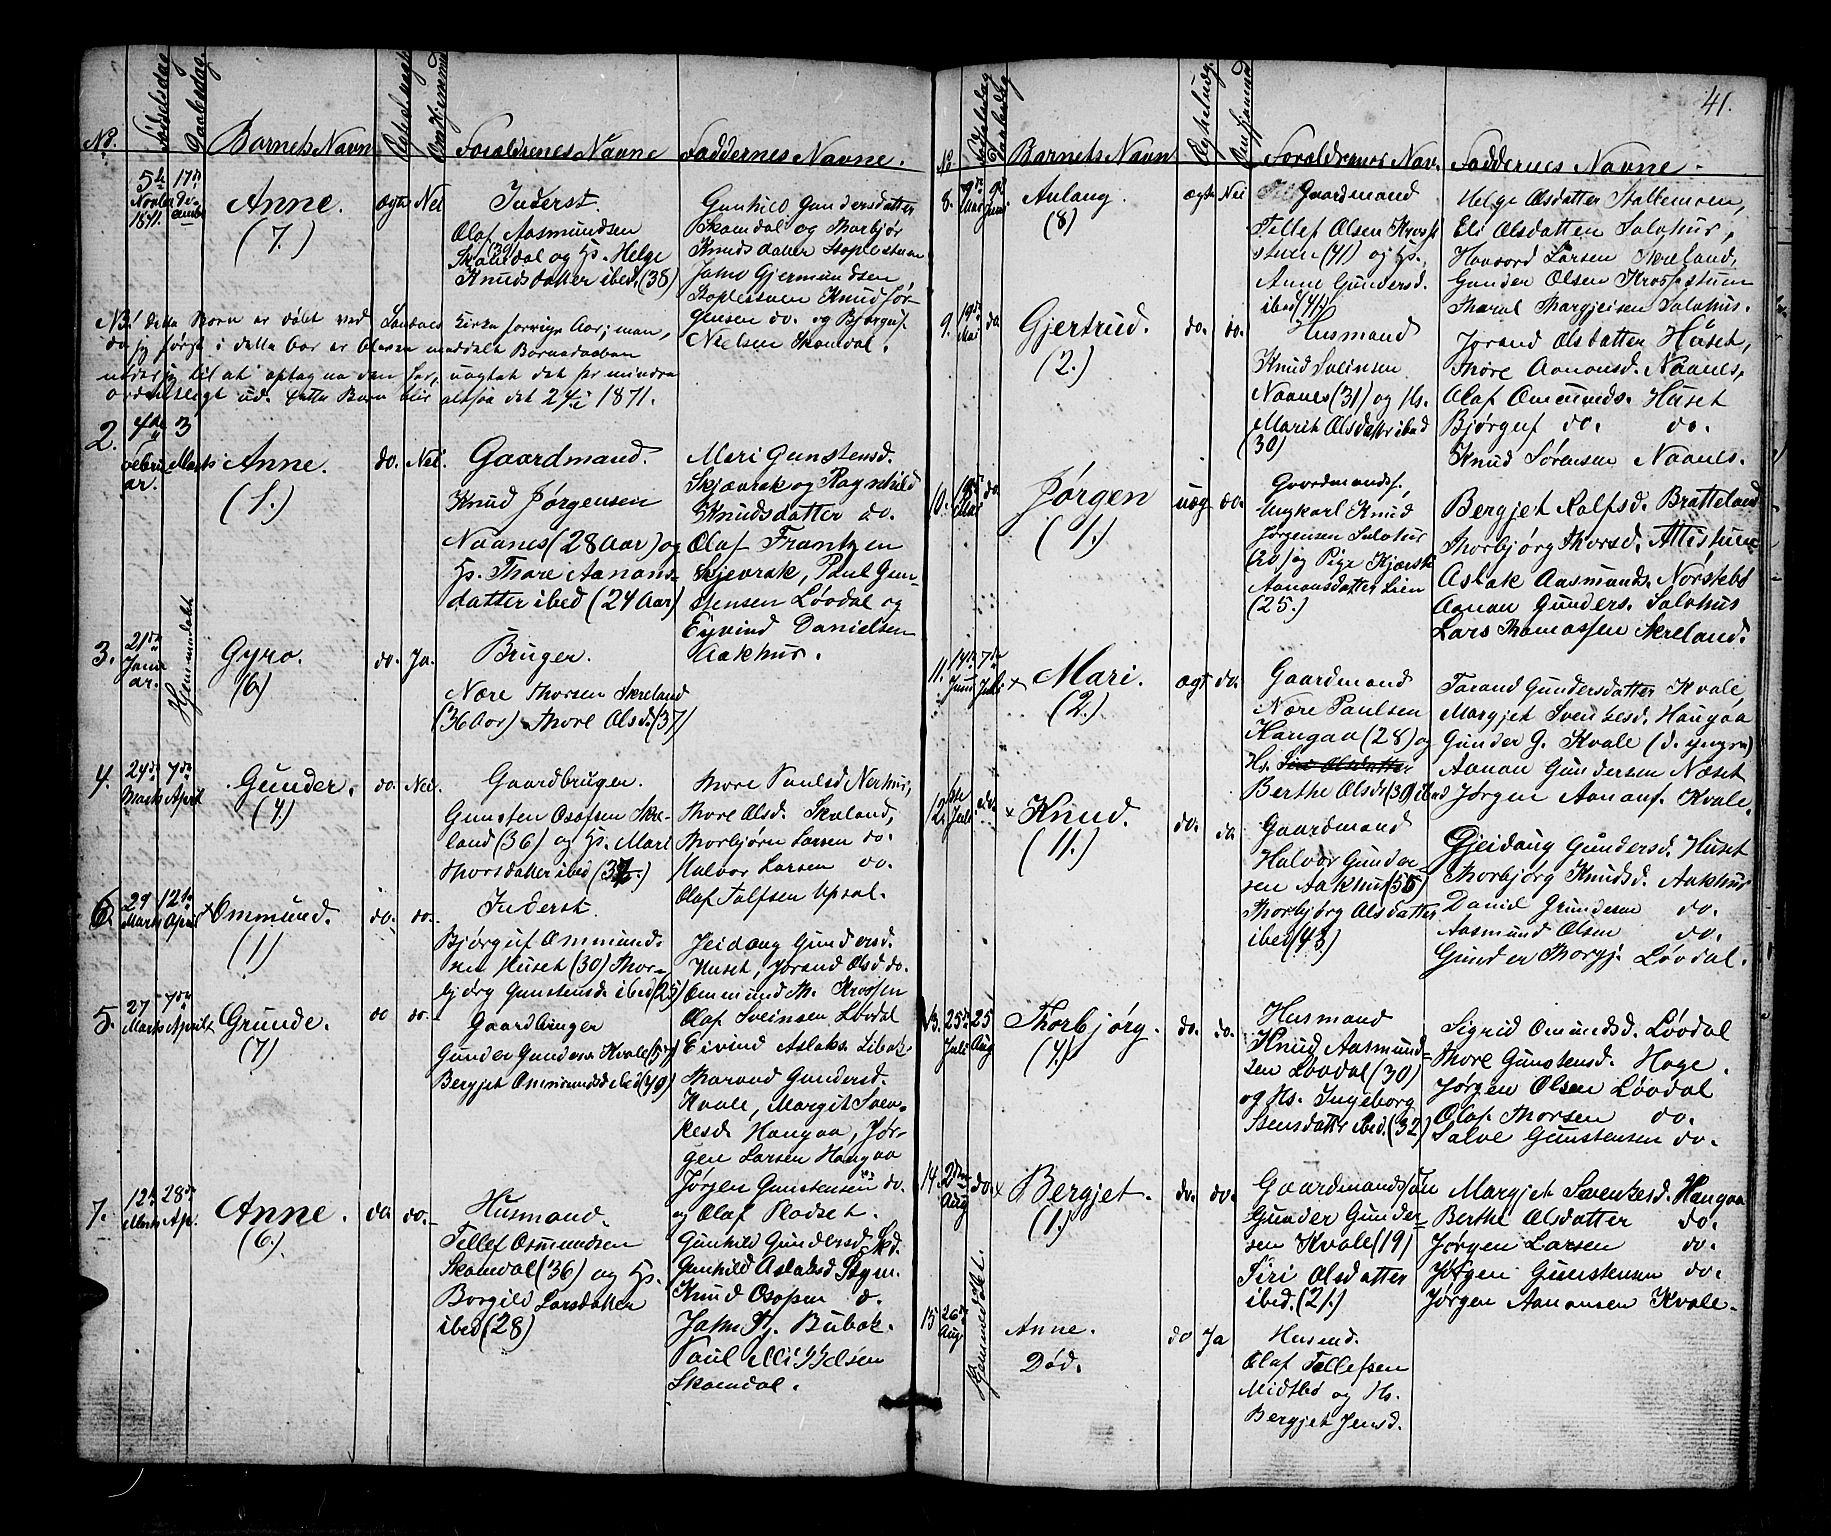 41.
No. Fødselsdag Daabsdag. Barnets Navn Foraldrenes Navne Faddernes Navne.
5te Novbr 1871. 17de December
Anne.
(7.)
ægte Nei
Inderst.
Olaf Aasmundsen
Skomdal (39) og Hs. Helge
Knudsdatter ibed. (38)
Gunhild Gundersdatter
Skomdal og Thorbjør
Knudsdatter Stoplestuen
John Gjermundsen
Stoplestuen Knud Jør-
gensen do. og Bjørguf
Nielsen Skomdal.
NB! dette Barn er døbt ved Landnes Kirke forrige Aar; men,
da jeg først i dette Aar er bleven meddelt Barnedaaben
nøder jeg til at optage den her, uagtet det før mindre
ordentligt ud. Dette Barn blir altsaa det 24de i 1871.
2. 4de Februar. 3 Marts
Anne.
(1.)
do. Nei.
Gaardmand.
Knud Jørgensen
Naanes (28 Aar) og
Hs. Thore Aanons-
datter ibed (24 Aar)
Mari Gunstensd.
Skjævrak og Ragnhild
Knudsdatter do.
Olaf Frantzen
Skjevrak, Paul Gun-
stensen Løvdal og
Eyvind Danielsen
Aakhus.
3. 21de Januar. Hjemmedøbt
Gyro.
(6)
do. Ja.
Bruger.
Nære Thorsen Skreland
(36 Aar) Thore Olsd. (37)
4. 24de Marts 7de April
Gunder.
(4)
do. Nei.
Gaardbruger.
Gunsten Osofsen Skre-
land (36) og Hs. Mari
Thorsdatter ibed
Thore Paulsd Nerhus,
Thore Olsd. Skreland,
Thorbjørn Larsen do.
Halvor Larsen do.
Olaf Talfsen Upsal.
6. 29 Marts 12te April
× Ommund.
(1)
do. do.
Inderst.
Bjørguf Ommund-
sen Huset (30) Thor-
bjørg Gunstensd. ibed (25)
Jeidang Gundersd.
Huset, Jorand Olsd do.
Ommund Th. Krossen
Olaf Sveinsen Løvdal
Eivind Aslaks. Libak
5. 27 Marts 7de April
× Grunde.
(7)
do do.
Gaardbruger
Gunder Gunders. Kvale (57)
Bergjet Ommundsd ibed (49)
Tharand Gundersd.
Kvale, Margit Sven-
kesd. Haugaa, Jør-
gen Larsen Haugaa
Jørgen Gunstensen do.
og Olaf Rodset.
7. 12te Marts 28de Ap.
Anne.
(6.)
do do.
Husmand.
Tellef Osmundsen
Skomdal (36) og Hs.
Borgild Larsdatter
ibed (28)
Gunhild Gundersd. Skd.
Gunhild Aslaksd Stgm.
Knud Osofsen do.
John Th. Bubak.
Paul Mikkelsen
Skomdal.
No. Barnets Navn Foraldrernes Nav. Faddernes Navne.
8. 9de Mai 9de Juni
Aulaug.
(8)
ægte Nei
Gaardmand
Tellef Olsen Kross-
stuen (41) og Hs.
Anne Gundersd.
ibed (41)
Helge Olsdatter Stallemoen,
Eli Olsdatter Salohus,
Haavord Larsen Skreland,
Gunder Olsen Krossestuen
Tharal Thorgjeisen Salohus.
9. 19de Mai do.
Gjertrud.
(2.)
do. do.
Husmand
Knud Sveinsen
Naanes (31) og Hs.
Marit Olsdatter ibed
(30)
Jorand Olsdatter Huset,
Thore Aanonsd. Naanes,
Olaf Ommunds. Huset
Bjørguf do. do.
Knud Sørensen Naanes.
10. Mai do.
Jørgen
(1.)
uæg do.
Gaardmands.
Ungkarl Knud
Jørgensen Salohus
og Pige Kjærsti
Aanonsdatter Lien
(25.)
Bergjet Rolfsd. Bratteland
Thorbjørg Thorsd. Attestuen
Aslak Aasmunds. Norstebø
Aanon Gunders. Salohus
Lars Thomassen Skreland.
11. 14de Juni 7de Juli
× Mari.
(2.)
ægt do.
Gaardmand
Nære Paulsen
Haugaa (28) og
Hs. Siri Olsdatter
Berthe Olsd (30) ibed
Tarand Gundersdatter Kvale,
Margjet Svenkesd. Haugaa
Gunder G. Kvale (d. yngre)
Aanon Gundersen Næset
Jørgen Aanons. Kvale.
12. Juli do.
× Knud.
(11.)
do. do
Gaardmand
Halvor Gunder
sen Aakhus (55)
Thorbjørg Olsdatter
ibed (43)
Gjeidaug Gundersd. Huset
Thorbjørg Knudsd. Aakhus
Daniel Grundesen do.
Aasmund Olsen do.
Gunder Thorgj. Løvdal.
13. 25de Juli 25 Aug
Thorbjørg.
(4.)
do. do.
Husmand
Knud Aasmund-
sen Løvdal (30)
og Hs. Ingeborg
Jensdatter ibed. (32)
Sigrid Omundsd. Løvdal
Thore Gunstensd. Hage.
Jørgen Olsen Løvdal
Olaf Thorsen do.
Salve Gunstensen do.
14. 2den Aug do.
× Bergjet.
(1.)
do. do.
Gaardmandssøn
Gunder Gunder-
sen Kvale (19)
Siri Olsdatter
ibed. (21.)
Margjet Svenkesd. Haugaa
Berthe Olsdatter do.
Jørgen Larsen do.
Jørgen Gunstensen do.
Jørgen Aanonsen Kvale.
15 26de Aug Hjemmedøbt.
Anne.
Død.
do Ja
Husmd.
Olaf Tellefsen
Midtbø og Hs.
Bergjet Jensd.